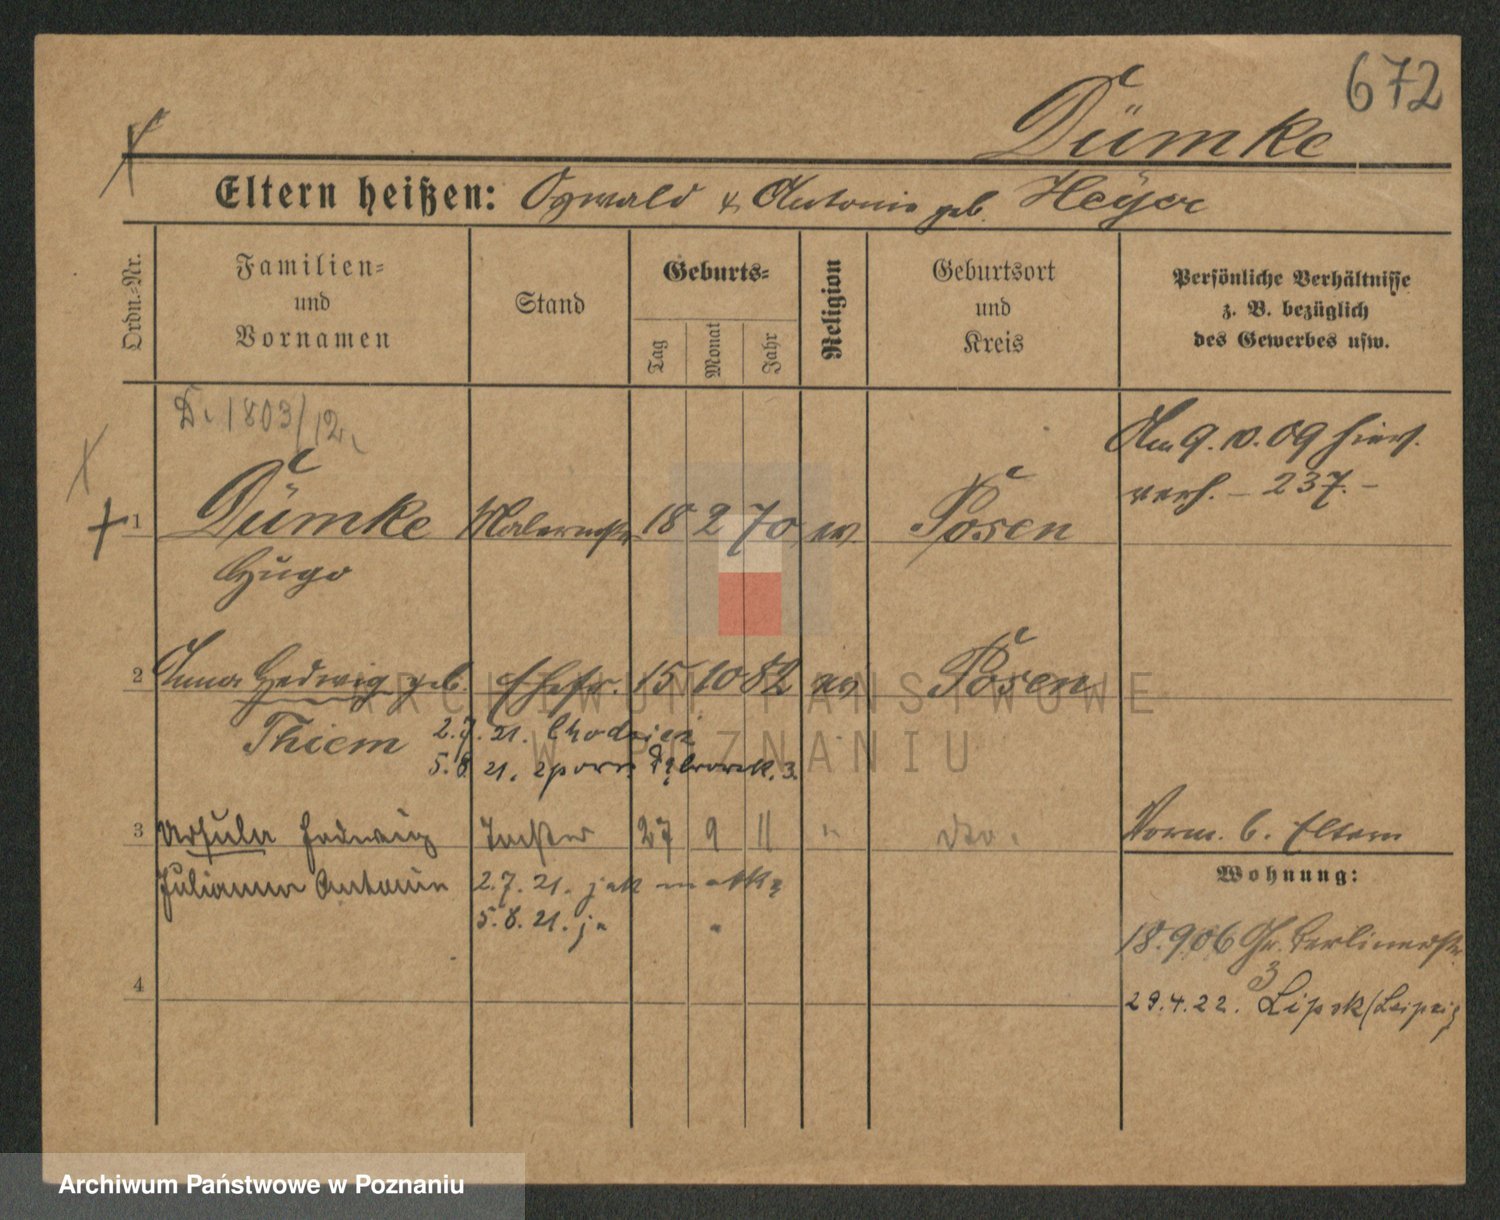 672
Dümke
Eltern heißen: Oswald & Antonie geb. Heyer
Ordn.-Nr.
Familien-
und
Vornamen
Stand
Geburts-
Tag
Monat
Jahr
Religion
Geburtsort
und
Kreis
Persönliche Verhältnisse
z. B. bezüglich
des Gewerbes usw.
D. 1803/12.
Am 9. 10. 09 hier
verh. – 237. –
1 Dümke Malermstr 18 2 70 ev Posen
Hugo
2 Anna Hedwig geb. Ehefr. 15 10 82 ev Posen
Thiem 2.7.21. Chodzież
5.8.21. 3.
3 Ursula Hedwig Tochter 27 9 11 " dto.
Vorm. b. Eltern
Julianna Antonie 2.7.21. jak matka
5.8.21. ja "
Wohnung:
18.9.06 Gr. Berlinerstr
3
4
29.4.22. Lipsk (Leipzig
ARCHIWUM PAŃSTWOWE
W POZNANIU
Archiwum Państwowe w Poznaniu